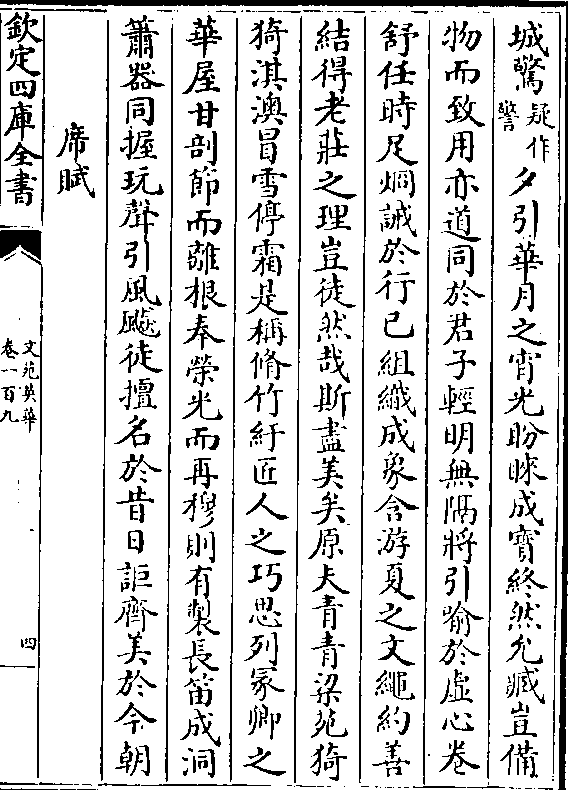 城驚疑作警夕引華月之宵光盼睞成寳終然允臧豈備
物而致用亦道同於君子輕明無隔將引喻於虚心卷
舒任時足烱誡於行已組織成象含游夏之文繩約善
結得老莊之理豈徒然哉斯盡美矣原夫青青梁苑猗
猗淇澳冒雪停霜是稱脩竹紆匠人之巧思列冢卿之
華屋甘剖節而離根奉榮光而再穆則有製長笛成洞
簫器同握玩聲引風飈徒擅名於昔日詎齊美於今朝
席賦
欽定四庫全書
文苑英華
卷一百九
四